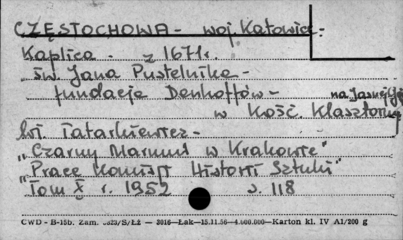 CZĘSTOCHOWA - woj. Katowice -
Kaplica - z 1671 r.
św. Jana Pustelnika -
fundacja Denhoffów -
na Jasnej Górze
w Kość. Klasztornej
W. Tatarkiewicz -
"Czarny Marmur w Krakowie"
"Prace Komisji Historii Sztuki"
Tom X r. 1952 s. 118
CWD - B-15b. Zam. S/Łź — 2016—Łak—15.11.56—4.000.000—Karton kl. IV A1/200 g